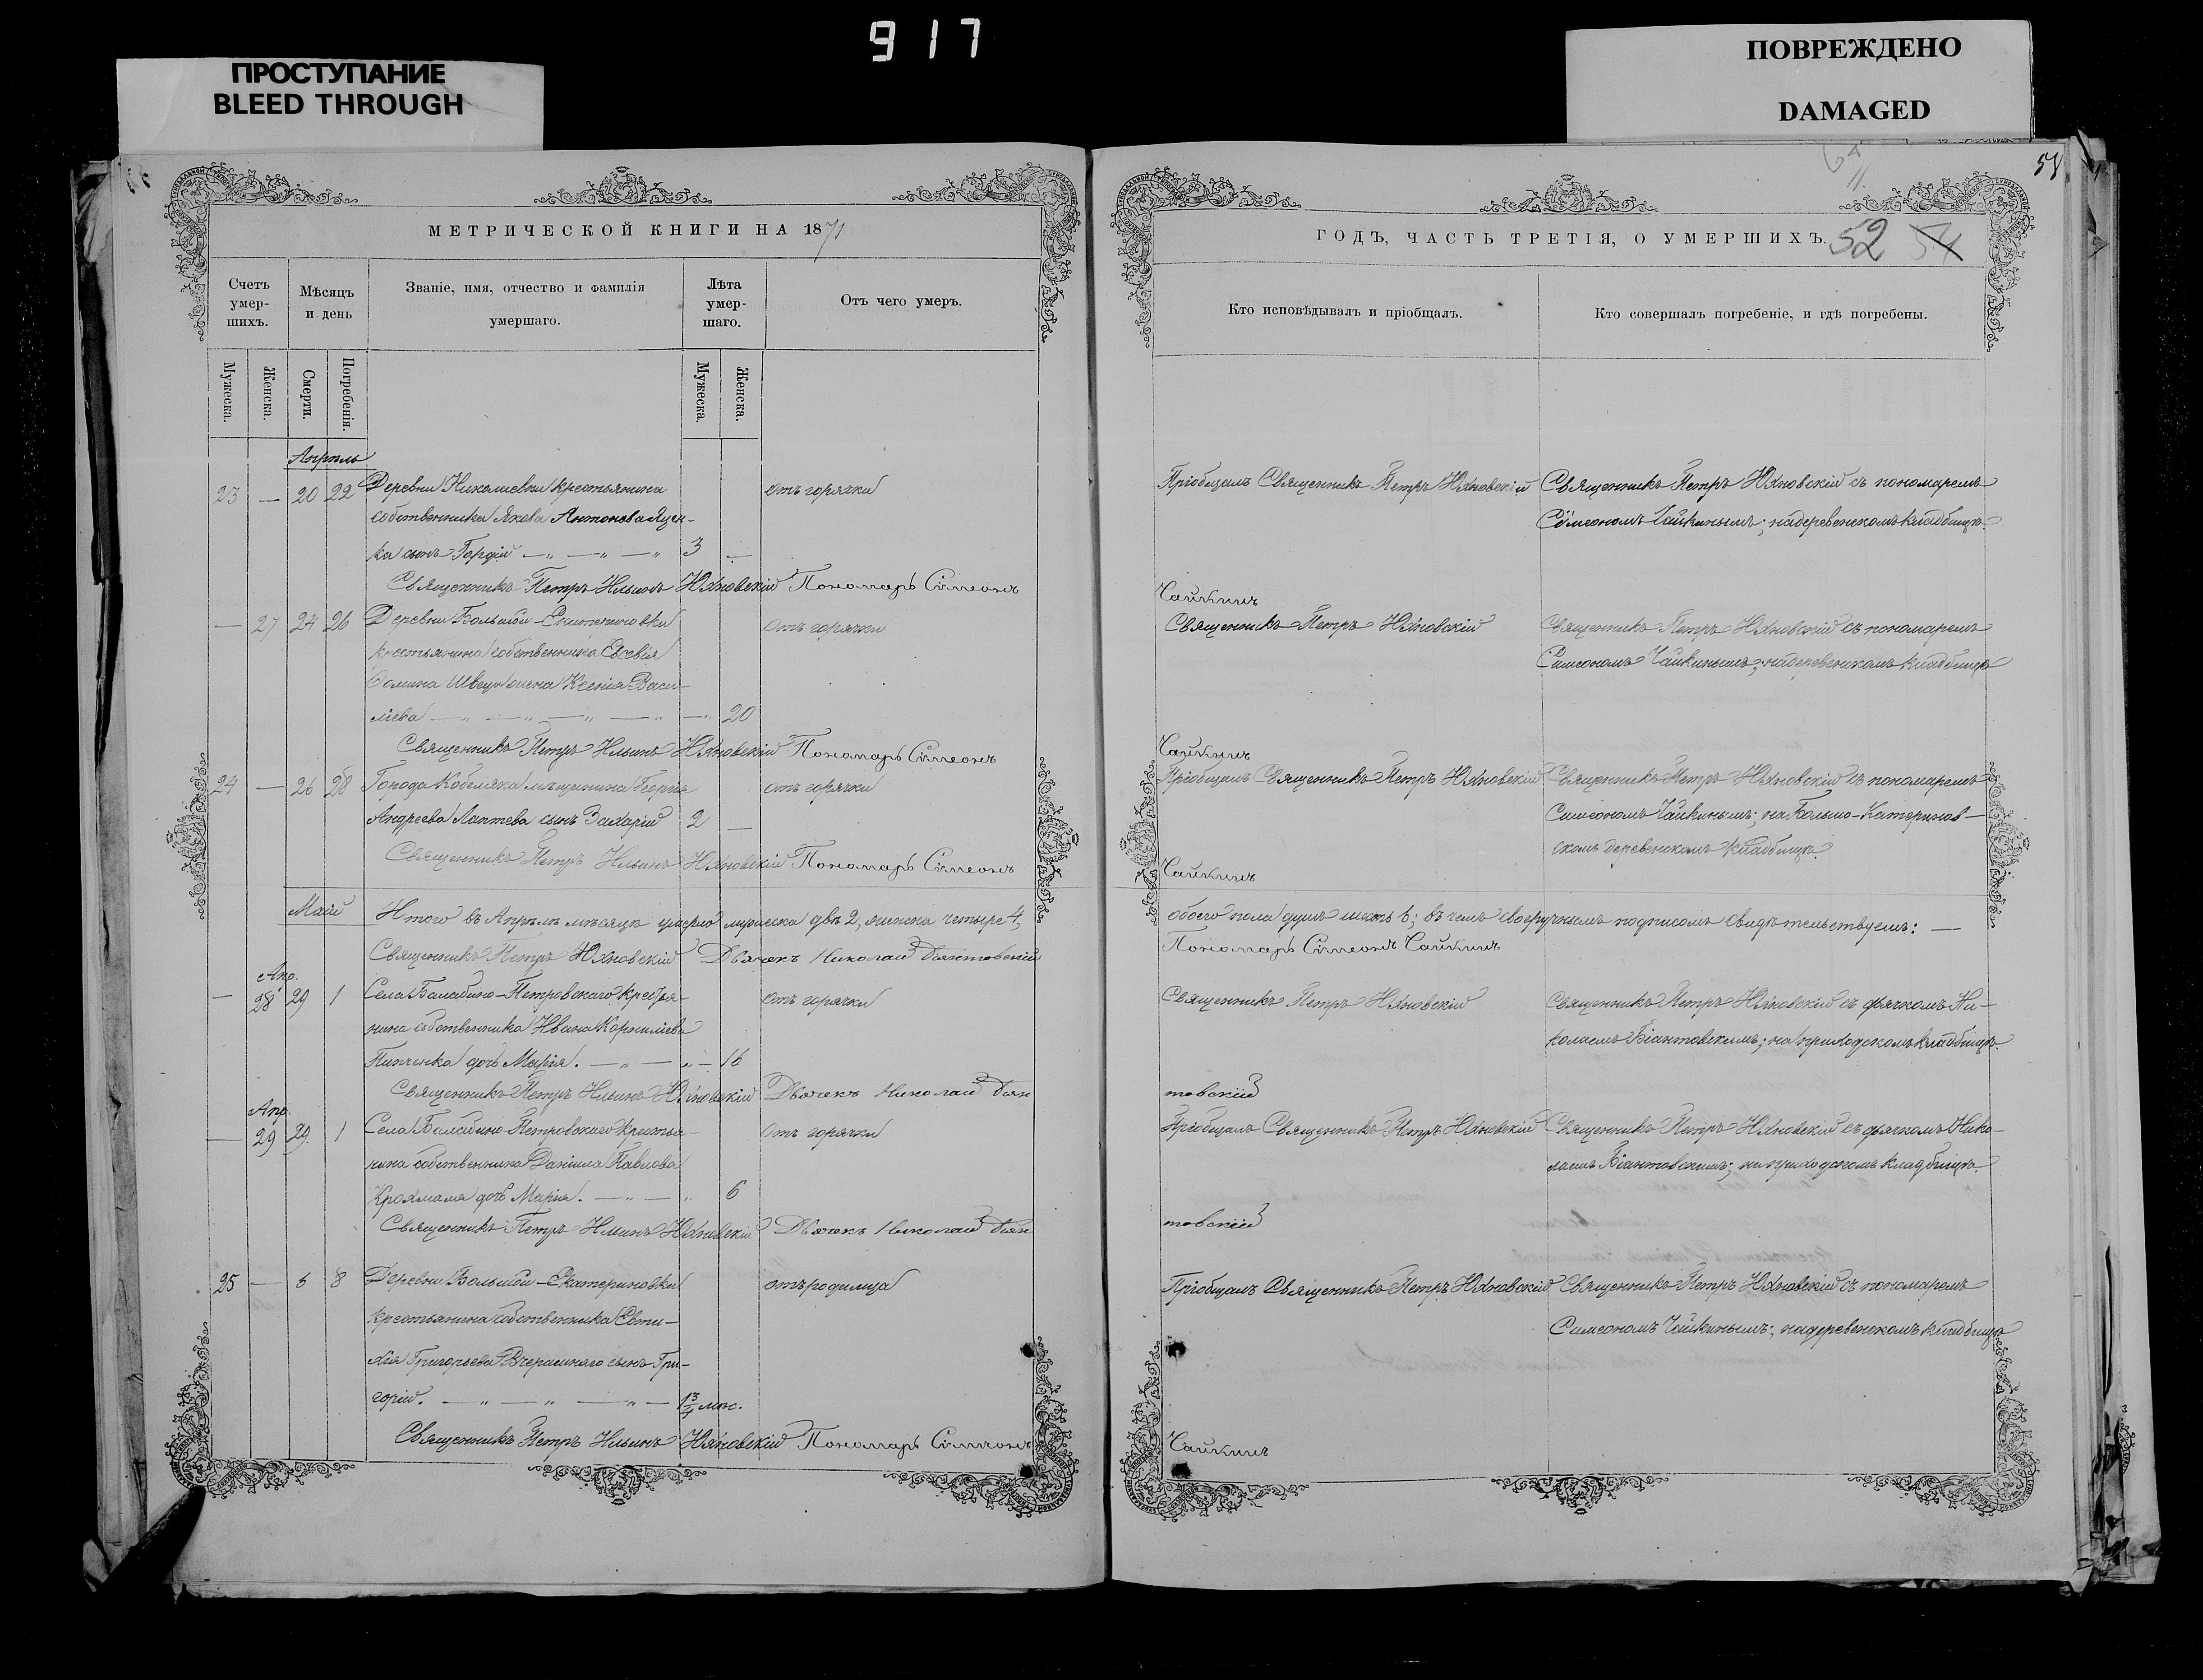 917
ПРОСТУПАНИЕ
BLEED THROUGH
ПОВРЕЖДЕНО
DAMAGED
МЕТРИЧЕСКОЙ КНИГИ НА 1871
Счетъ умер-шихъ.
Мѣсяцъ и день
Званіе, имя, отчество и фамилія умершаго.
Лѣта умер-шаго.
Отъ чего умеръ.
Мужеска.
Женска.
Смерти.
Погребенія.
Мужеска.
Женска.
Апрѣль
23 — 20 22 Деревни Николаевки крестьянина отъ горячки
собственника Якова Антонова Яцен-
ка сынъ Гордій — „ — „ — „ 3 —
Священникъ Петръ Ильинъ Юхновскій Пономарь Сѵмеонъ
— 27 24 26 Деревни Большой-Екатериновки отъ горячки
крестьянина собственника Евсевія
Швеца жена Ксенія Васи-
лієва — „ — „ — „ — „ — „ 20
Священникъ Петръ Ильинъ Юхновскій Пономарь Сѵмеонъ
24 — 26 28 Города Кобеляка мѣщанина Георгія отъ горячки
Андреева Лаптева сынъ Захарій 2 —
Священникъ Петръ Ильинъ Юхновскій Пономарь Сѵмеонъ
Май
Итого въ Апрѣлѣ мѣсяцѣ умерло мужеска двѣ 2, женска четыре 4,
Священникъ Петръ Юхновскій Дьячекъ Николай Біянтовскій
Апр.
— 28 29 1 Села Балабино-Петровскаго крестья- отъ горячки
нина собственника Ивана Корнилієва
Пипченка дочь Марія. — „ — „ — 16
Священникъ Петръ Ильинъ Юхновскій Дьячекъ Николай Біян
Апр.
— 29 29 1 Села Балабино-Петровскаго крестья- отъ горячки
нина собственника Даніила Павлова
дочь Марія. — „ — „ 6
Священникъ Петръ Ильинъ Юхновскій Дьячекъ Николай Біян
25 — 8 Деревни Большой-Екатериновки отъ родимца
крестьянина собственника Евти-
хія Григорьева Вчерашняго сынъ Гри-
горій. — „ — „ — „ — 1 3/4 мѣс.
Священникъ Петръ Ильинъ Юхновскій Пономарь Сѵмеонъ
ГОДЪ, ЧАСТЬ ТРЕТІЯ, О УМЕРШИХЪ.
52 54
Кто исповѣдывалъ и пріобщалъ.
Кто совершалъ погребеніе, и гдѣ погребены.
Пріобщалъ Священникъ Петръ Юхновскій
Священникъ Петръ Юхновскій съ пономаремъ
Сѵмеономъ Чайкинымъ; на деревенскомъ кладбищѣ.
Чайкинъ
Священникъ Петръ Юхновскій
Священникъ Петръ Юхновскій съ пономаремъ
Симеономъ Чайкинымъ; на деревенскомъ кладбищѣ
Чайкинъ
Пріобщалъ Священникъ Петръ Юхновскій
Священникъ Петръ Юхновскій съ пономаремъ
Симеономъ Чайкинымъ; на Больше-Катеринов-
скомъ деревенскомъ кладбищѣ.
Чайкинъ
обоего пола душъ шесть 6; въ чемъ своеручнымъ подписомъ свидѣтельствуемъ: —
Пономарь Сѵмеонъ Чайкинъ
Священникъ Петръ Юхновскій
Священникъ Петръ Юхновскій съ дьячкомъ Ни-
колаемъ Біантовскимъ; на приходскомъ кладбищѣ.
товскій
Пріобщалъ Священникъ Петръ Юхновскій
Священникъ Петръ Юхновскій съ дьячкомъ Нико-
лаемъ Біантовскимъ; на приходскомъ кладбищѣ.
товскій
Пріобщалъ Священникъ Петръ Юхновскій
Священникъ Петръ Юхновскій съ пономаремъ
Симеономъ Чайкинымъ; на деревенскомъ кладбищѣ
Чайкинъ